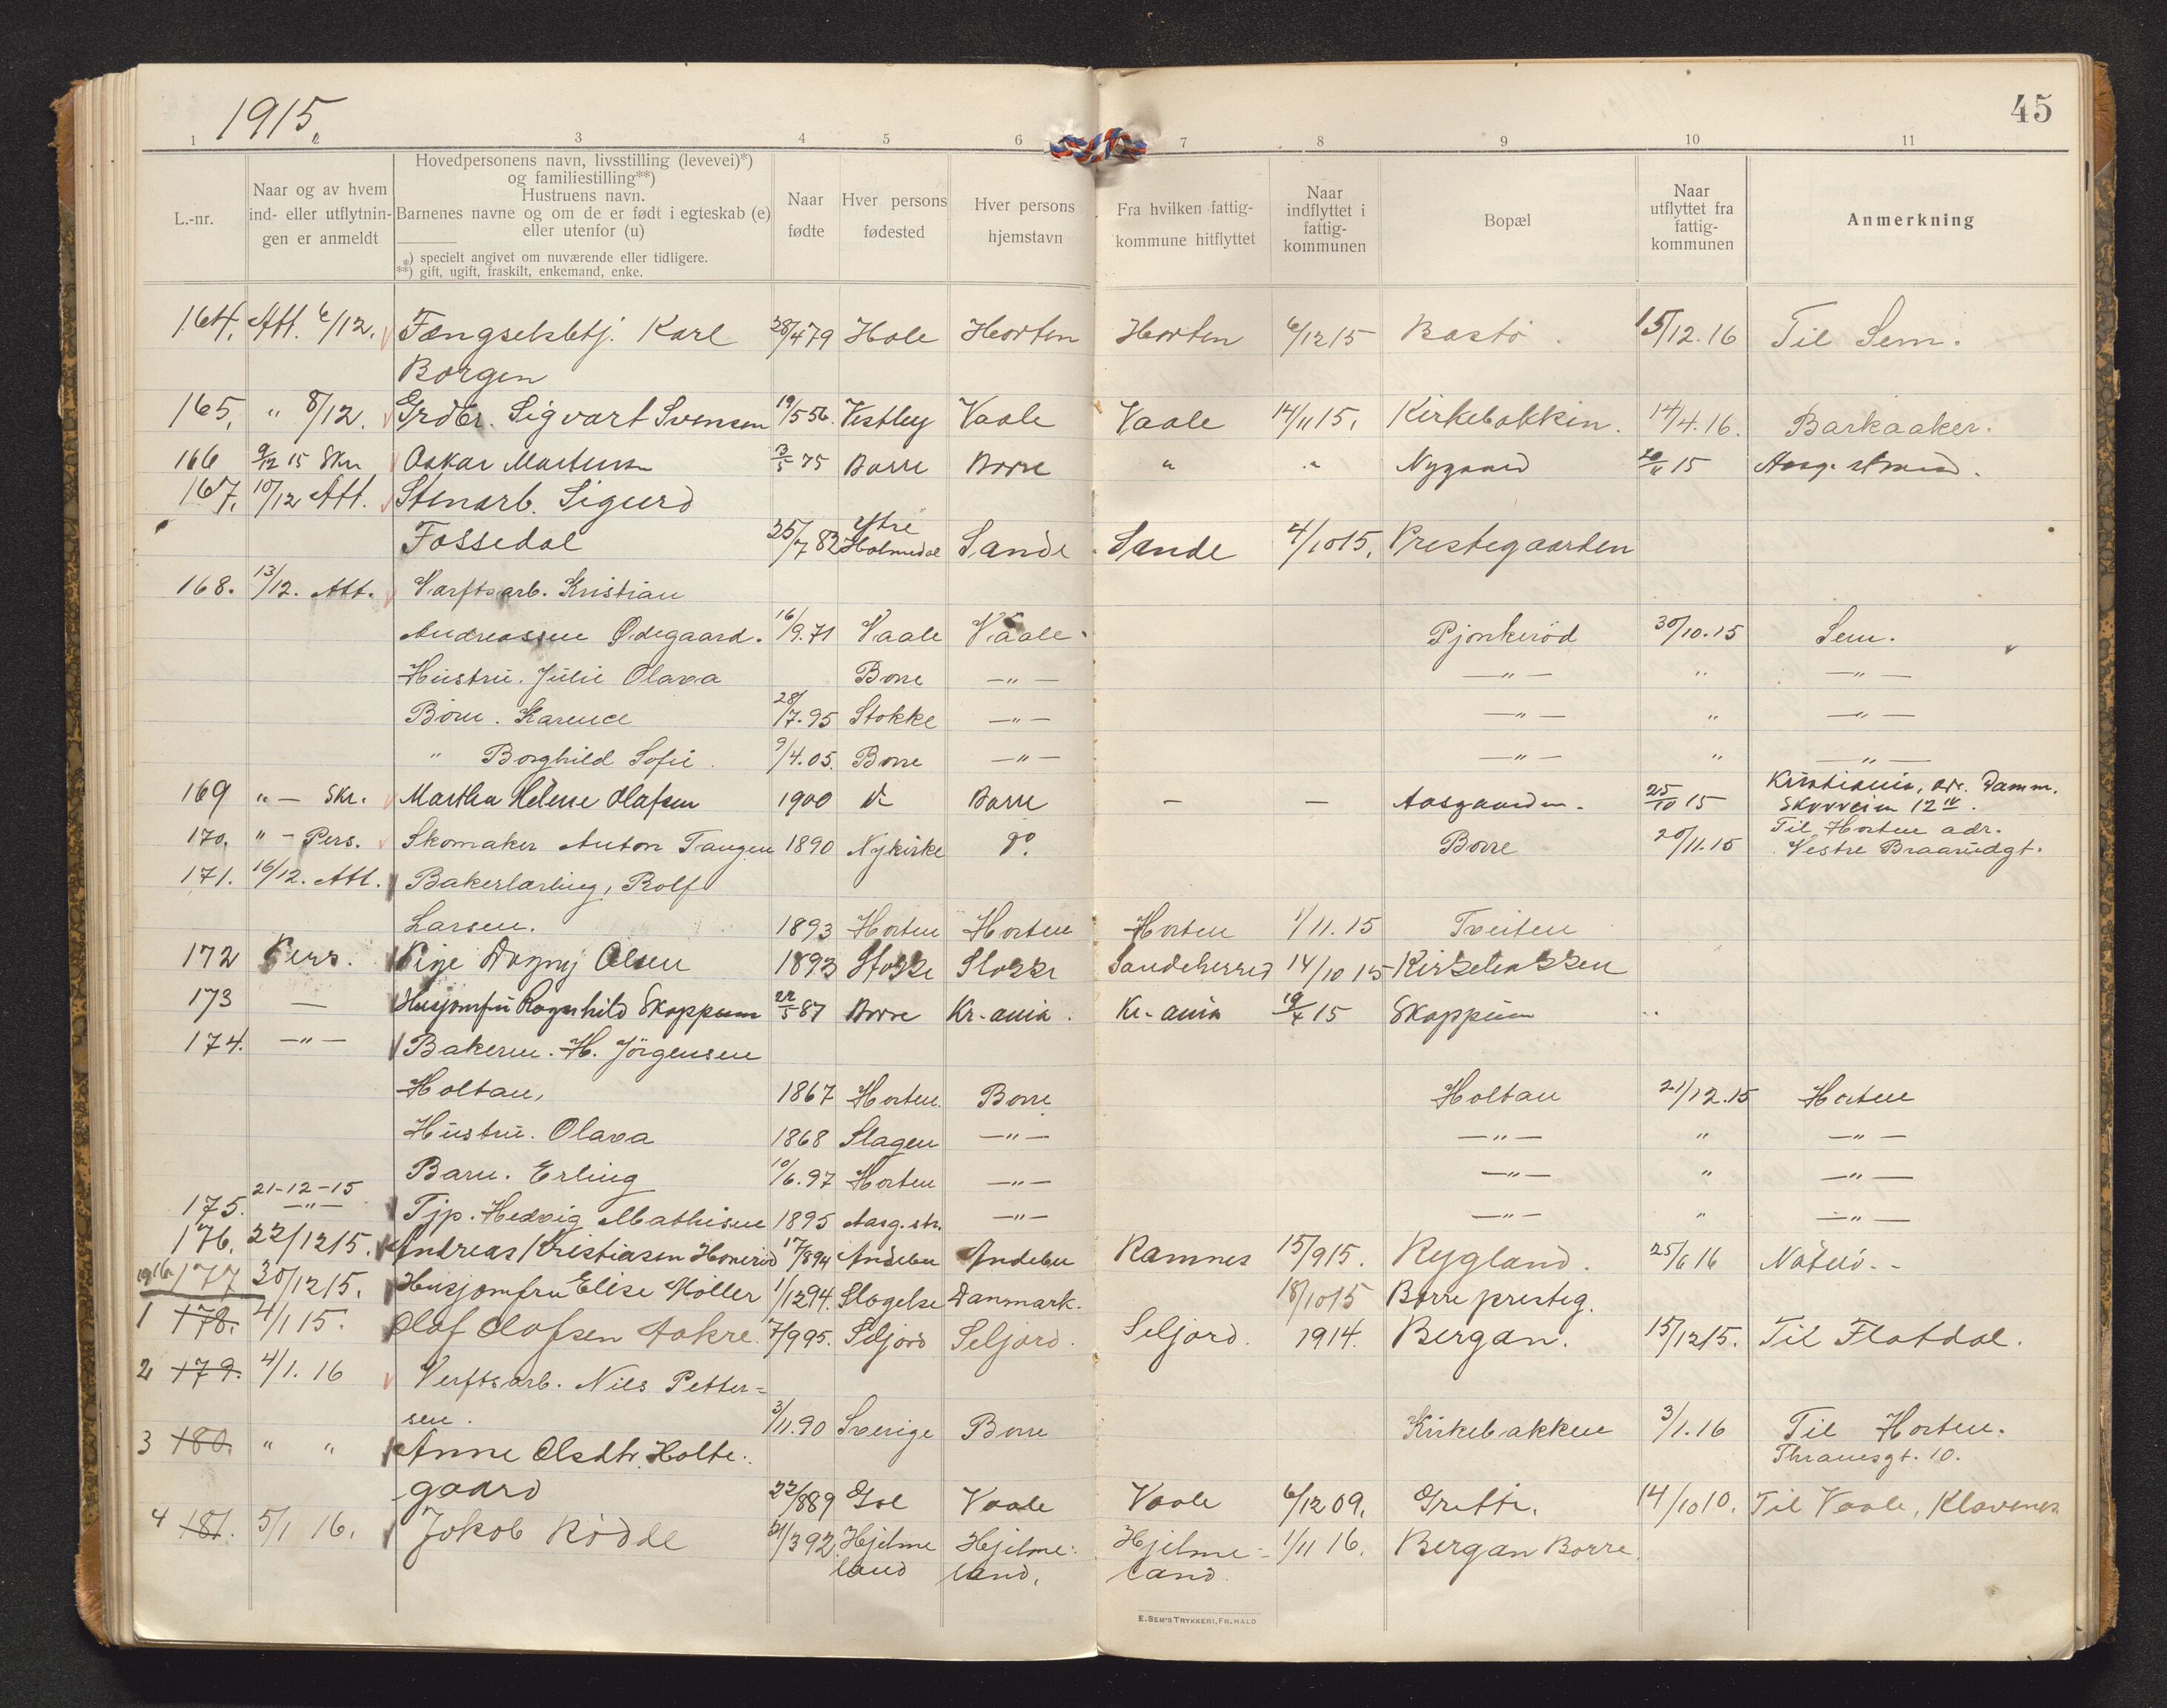 1915.
45
1 2 3 4 5 6 7 8 9 10 11
L.-nr.
Naar og av hvem
ind- eller utflytnin-
gen er anmeldt
Hovedpersonens navn, livsstilling (levevei)*)
og familiestilling**)
Hustruens navn.
Barnenes navne og om de er født i egteskab (e)
eller utenfor (u)
*) specielt angivet om nuværende eller tidligere.
**) gift, ugift, fraskilt, enkemand, enke.
Naar
fødte
Hver persons
fødested
Hver persons
hjemstavn
Fra hvilken fattig-
kommune hitflyttet
Naar
indflyttet i
fattig-
kommunen
Bopæl
Naar
utflyttet fra
fattig-
kommunen
Anmerkning
164. Att. 6/12. Fængselsbtj. Karl 28/4 79 Hole Horten Horten 6/12 15 Bastö. 15/12.16 Til Sem.
Borgen
165. " 8/12. Grdbr. Sigvart Svensen 19/5 56. Vestby Vaale Vaale 14/11 15. Kirkebakken. 14/4.16. Barkaaker.
166 9/12 15 Skr. Oskar Martinsen 3/5 75 Borre Borre " " Nygaard 20/11 15 Aasg. strand.
167. 10/12 Att. Stenarb. Sigurd
Fossedal 25/7 82 Ytre Holmedal Sande Sande 4/10 15. Prestegaarden
168. 13/12. Att. Varftsarb. Kristian
Andreassen Ødegaard. 16/9.71 Vaale Vaale. Pjonkeröd 30/10.15 Sem.
Hustru. Julie Olava Borre —"— —"— " —"—
Börn. Karence 28/7.95 Stokke —"— —"— " —"—
" Borghild Sofie. 9/4.05. Borre —"— —"— " —"—
169 "— Skr. Martha Helene Olafsen 1900 do Borre — — Aasgaarden. 25/10 15 Kristiania, adr. Damm.
Skovveien 12 IV.
170. "— Pers. Skomaker Anton Tangen 1890 Nykirke do. Borre 20/11.15 Til Horten adr.
Vestre Braarudgt.
171. 16/12. Att. Bakerlærling, Rolf
Larsen. 1893 Horten Horten Horten 1/11.15 Tveiten
172 Pers. Pige Dagny Olsen 1893 Stokke Stokke Sandeherred 14/10 15 Kirkebakken
173 — Husjomfru Ragnhild Skoppum 22/5 87 Borre Kr-ania. Kr-ania 19/4 15 Skoppum
174. —"— Bakerm. H. Jörgensen
Holtan, 1867 Horten. Borre Holtan 21/12.15 Horten
Hustru. Olava 1868 Slagen —"— —"— " —"—
Barn. Erling 10/6.97 Horten —"— —"— " —"—
21-12-15
175. —"— Tjp. Hedvig Mathisen 1895 Aasg. str. —"— —"— " —"—
176. 22/12 15. Andreas Kristiasen Honeröd 17/8 94 Andebu Andebu Ramnes 15/9 15. Rygland. 25/6 16 Nöterö.
1916 177 30/12 15. Husjomfru Elise Möller 1/12 94. Slagelse Danmark. 18/10 15 Borre presteg.
1 178. 4/1 15. Olaf Olafsen Aakre. 7/9 95. Seljord Seljord. Seljord. 1914. Bergan. 15/12 15. Til Flatdal.
2 179. 4/1. 16 Verftsarb. Nils Petter-
sen. 3/11.90 Sverige Borre Kirkebakken 3/1.16 Til Horten.
Thranesgt. 10.
3 180. " " Anne Olsdtr. Holte-
gaard 22/8 89 Gol Vaale Vaale 6/12 09. Grette. 14/10 10. Til Vaale, Klavenes
4 181. 5/1 16. Jakob Rödde 21/3 92. Hjelme Hjelme- Hjelme- 1/11 16. Bergan Borre.
land land. land.
E. SEM'S TRYKKERI, FR.HALD